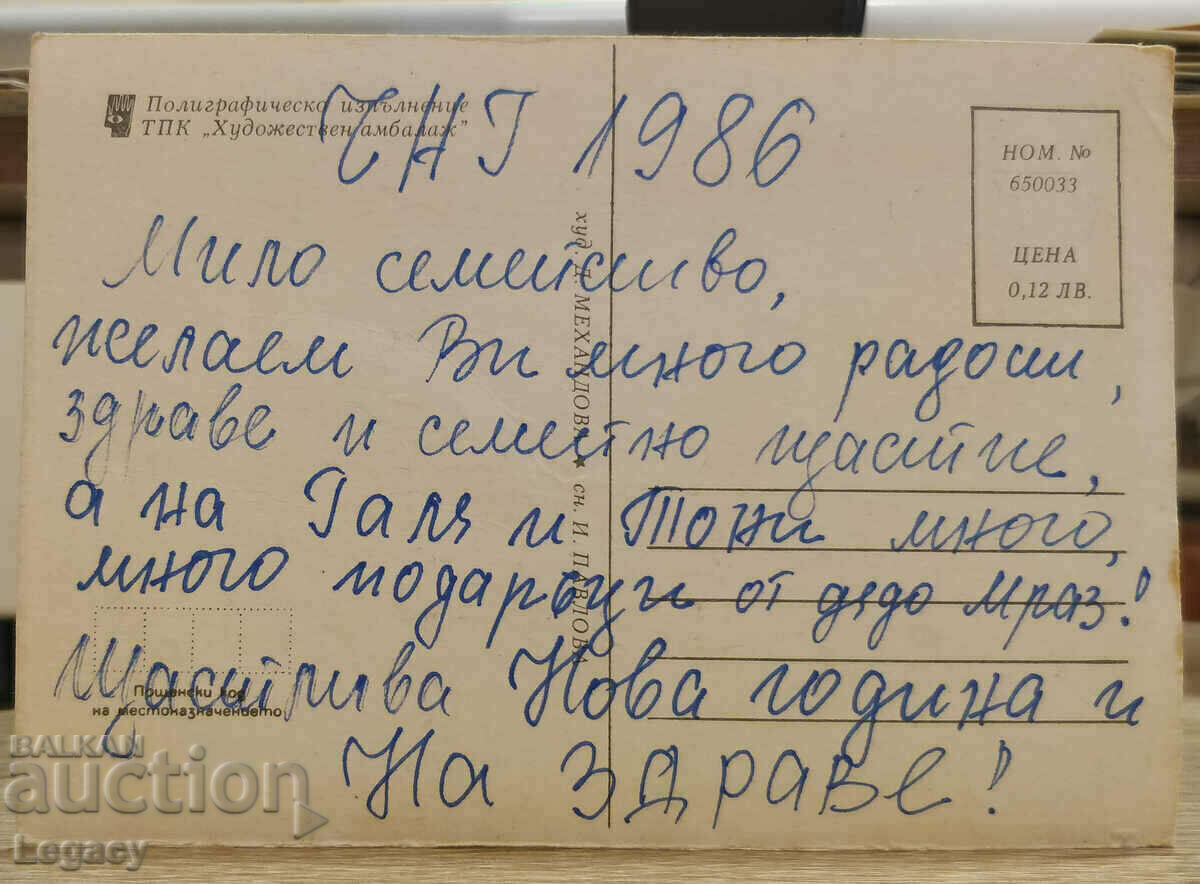 Полиграфическо изпълнение
ТПК „Художествен амбалаж”
ЧНГ 1986
НОМ. №
650033
ЦЕНА
0,12 ЛВ.
Мило семейство,
желаем Ви много радост,
здраве и семейно щастие,
а на Галя и Тони много,
много подаръци от дядо Мраз!
Щастлива Нова година и
На здраве!
худ. Д. МЕХАНДОВА ★ сн. И. ПАВЛОВА
Пощенски код
на местоназначението
BALKAN
auction
Legacy